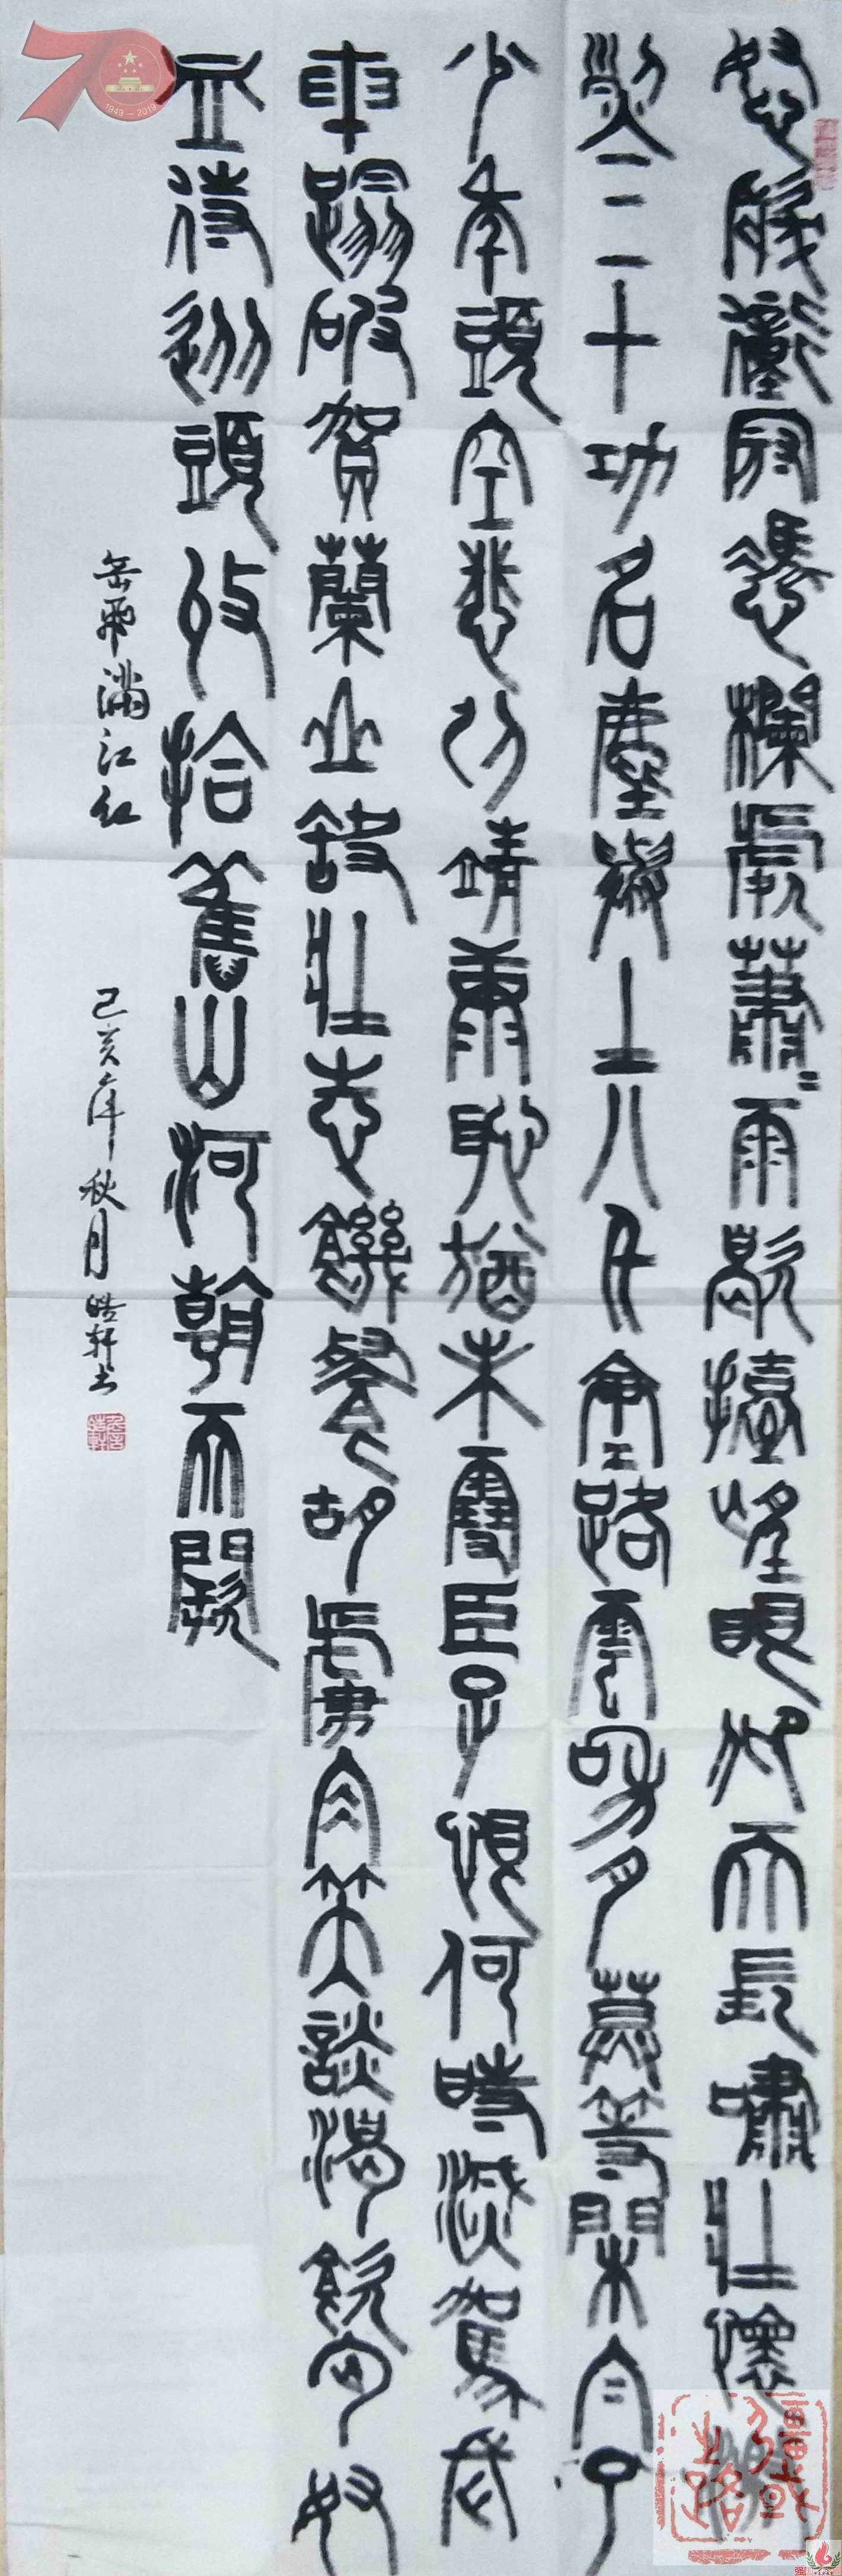 怒髮衝冠憑欄處蕭〻雨歇擡望眼仰天長嘯壯懷激
烈三十功名塵與土八千里路雲和月莫等閒白了
少年頭空悲切靖康恥猶未雪臣子恨何時滅駕長
車踏破賀蘭山缺壯志饑餐胡虜肉笑談渴飲匈奴
血待從頭收拾舊山河朝天闕
岳飛滿江紅
己亥年秋月皓軒书
70
1949－2019